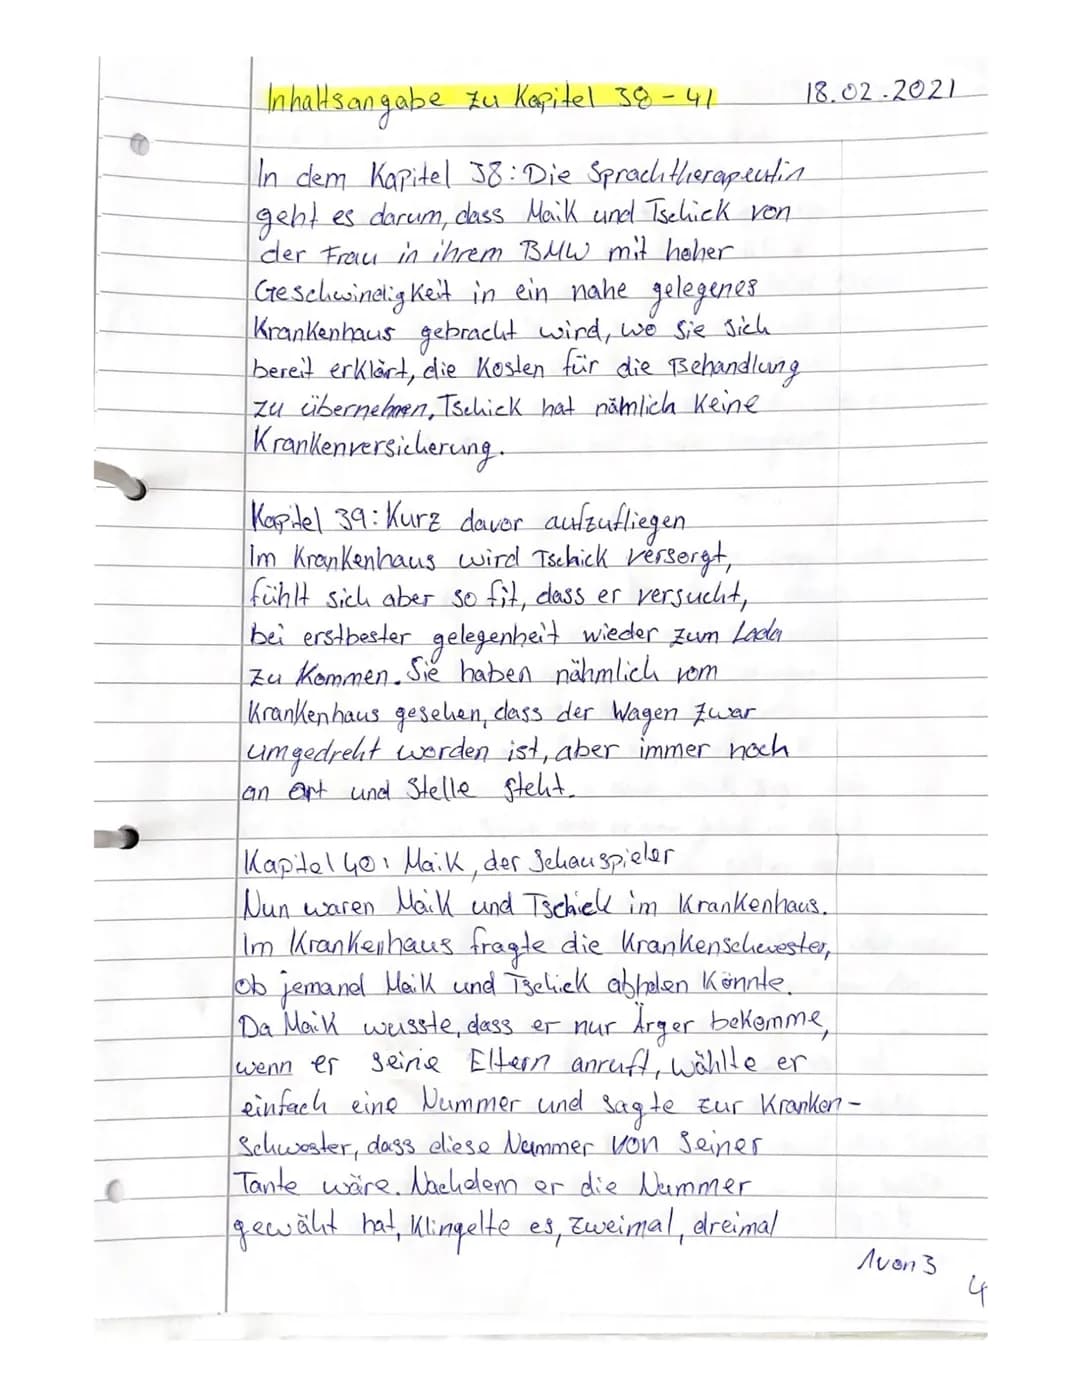 Inhaltsangabe zu Kapitel 38-41
18.02.2021
In dem Kapitel 38: Die Sprachtherapeutin
geht es darum, dass Maik und Tschick von
der Frau in ihrem BMW mit hoher
Geschwindigkeit in ein nahe gelegenes
Krankenhaus gebracht wird, wo sie sich
bereit erklärt, die Kosten für die Behandlung
zu übernehmen, Tschick hat nämlich keine
Krankenversicherung.
Kapitel 39: Kurz davor aufzufliegen
Im Krankenhaus wird Tschick versorgt,
fühlt sich aber so fit, dass er versucht,
bei erstbester gelegenheit wieder zum Lada
zu kommen. Sie haben nähmlich vom
Krankenhaus gesehen, dass der Wagen zwar
umgedreht worden ist, aber immer noch
an Ort und Stelle steht.
Kapitel 40: Maik, der Schauspieler
Nun waren Maik und Tschick im Krankenhaus.
Im Krankenhaus fragte die Krankenschwester,
ob jemand Maik und Tschick abholen könnte.
Da Maik wusste, dass er nur Ärger bekomme,
wenn er seine Eltern anruft, wählte er
einfach eine Nummer und sagte zur Kranken-
schwester, dass diese Nummer von seiner
Tante wäre. Nachdem er die Nummer
gewäht hat, klingelte es, zweimal, dreimal
1 von 3
4